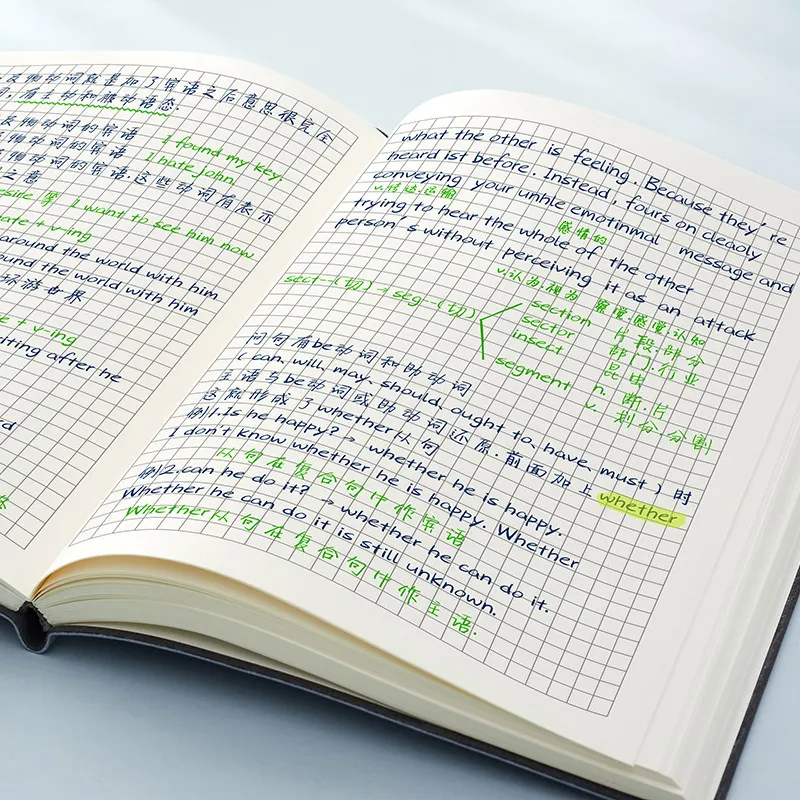 及物动词就是加了宾语之后意思很完全
有主动和被动语态.
及物动词的宾语
I found my key.
物动词的宾语
I hate John.
物动词的宾语.这些动词有表示
之意
I want to see him now
hate + v-ing
around the world with him
ound the world with him
环游世界
e + v-ing
iting after he
what the other is feeling. Because they're
heard ist before. Instead, fours on cleaoly
conveying your unhle emotinmal message and
v.传达.运输
感情的
trying to hear the whole of the other
person's without perceiving it as an attack
v.认为.视为 察觉.感觉.认知
sect-(切)→seg-(切)
section 片段.部分
sector 部门.行业
insect 昆虫
segment n. 断.片
v. 划分.分割
问句有be动词和助动词
( can, will, may, should, ought to, have, must ) 时
主语与be动词或助动词还原.前面加上 whether
这就形成了whether从句
例1.Is he happy? → whether he is happy.
I don't know whether he is happy. Whether
从句在复合句中作宾语
例2.can he do it? → whether he can do it.
Whether he can do it is still unknown.
Whether从句在复合句中作主语.